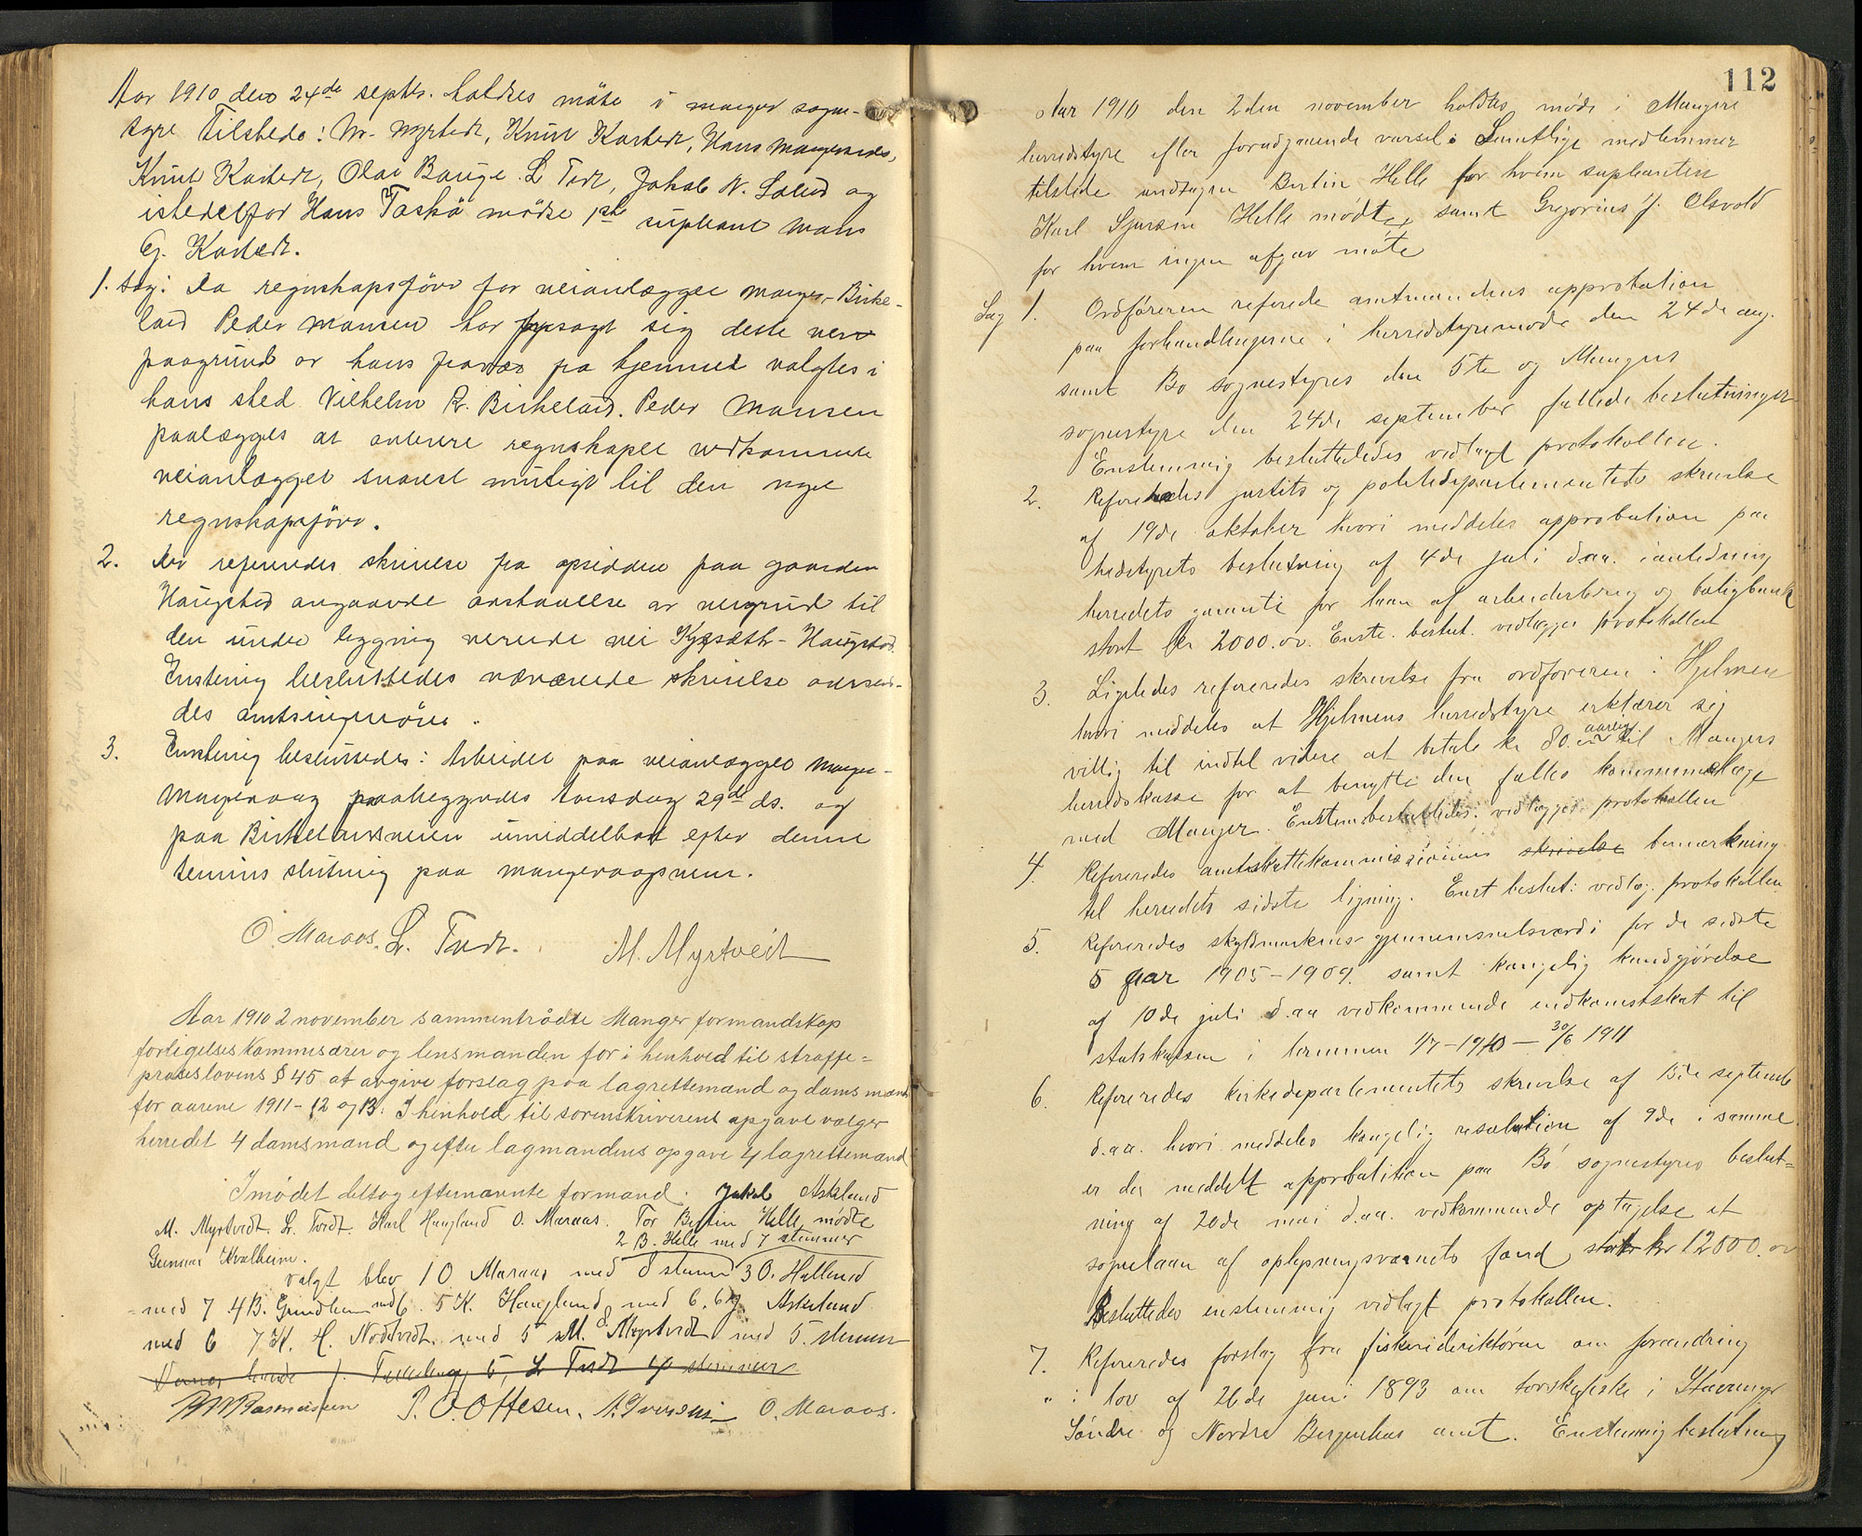 Aar 1910 den 24de septbr. holdtes möte i manger sogne-
tyre Tilstede: M. Myrtvedt, Knut Kartvedt, Hans Mangersnes,
Knut Kartvedt, Olai Bauge. L. Tvedt, Jakob N. Solend og
istedetfor Hans Toskö mödte 1ste supleant Mons
G. Kartvedt.
1. Sag: Da regnskapsförer for veianlægget Manger-Birke-
land Peder Monsen har frasagt sig dette verv
paagrund av hans fravær fra hjemmet valgtes i
hans sted Vilhelm R. Birkeland. Peder Monsen
paalægges at avlevere regnskapet vedkommende
veianlægget snarest muligt til den nye
regnskapsförer.
2. Der refereredes skrivelse fra opsiddere paa gaarden
Haugstad angaaende avstaaelse av veigrund til
den under bygning verende vei Kvesæth-Haugstad.
Enstemig besluttedes nærværende skrivelse oversen-
des amtsingeniören.
3. Enstemig besluttedes: Arbeidet paa veianlægget Manger-
Mangervaag paabegyndes torsdag 29de ds. og
paa Birkelandsveien umiddelbart efter denne
termins slutning paa mangervaagveien.
O. Maraas. L. Tvedt. M. Myrtveit
Aar 1910 2 november sammentrådte Manger formandskap
forligelseskommisærer og lensmanden for i henhold til straffe-
proseslovens § 45 at avgive forslag paa lagrettemænd og domsmænd
for aarene 1911-12 og 13. I henhold til sorenskriverens opgave vælger
herredet 4 domsmænd og efter lagmandens opgave 4 lagrettemænd
I mödet deltog efternævnte formænd. Jakob Askeland
M. Myrtvedt. L. Tvedt. Karl Haugland O. Maraas. For Bertin Helle mødte
Gunnar Kvalheim. 2 B. Helle med 7 stemmer
valgt blev 1 O. Maraas med 8 stemmer 3 O. Halland
med 7 4 B. Grindheim med 6. 5 K. Haugland med 6. 6 J. Askeland
med 6 7 K. H. Nodtvedt med 5 8 M. Myrtvedt med 5. stemmer
5, L Tvedt 4 stemmer
Rasmussen P. O. Ottesen. A. Iversen O. Maraas.
112
Aar 1910 den 2den november holdtes møde i Mangers
herredstyre efter forudgaaende varsel. Samtlige medlemmer
tilstede undtagen Bertin Helle for hvem suplianten
Karl Sjursen Helle mødte, samt Gregorius J. Olsvold
for hvem ingen afgav møte
Sag 1. Ordføreren referede amtmandens approbation
paa forhandlingerne i herredstyremøde den 24de aug.
samt Bø sognestyres den 5te og Mangers
sognestyre den 24de september fattede beslutninger
Enstemmig besluttedes vedlagt protokollen.
2. Refereredes justits og politidepartementets skrivelse
af 19de oktober hvori meddeles approbation paa
hedstyrets beslutning af 4de juli d.aa. i anledning
herredets garanti for laan af arbeiderbrug og boligbank
stort kr 2000.00. Enste. beslut. vedlægges protokollen
3. Ligeledes refereredes skrivelse fra ordføreren i Hjelmen
hvori meddeles at Hjelmens herredstyre erklærer sig
villig til indtil videre at betale kr 80.00 aarlig til Mangers
herredskasse for at benytte den fælles kommunelæge
med Manger. Enstem besluttedes: vedlægges protokollen
4. Refereredes amtskattekommissionens skrivelse bemærkning
til herredets sidste ligning. Enst beslut: vedlæg. protokollen
5. Refereredes skyldmarkens gjennemsnitsværdi for de sidste
5 aar 1905-1909. samt kongelig kundgjørelse
af 10de juli d.aa vedkommende indkomstskat til
statskassen i terminen 1/7-1910 - 30/6 1911
6. Refereredes kirkedepartementets skrivelse af 13de septembe
d.aa. hvori meddeles kongelig resolution af 9de i samme
er der meddelt approbation paa Bø sognestyres beslut-
ning af 20de mai d.aa. vedkommende optagelse et
sognelaan af oplysningsvæsenets fond stort kr 12000.00
Besluttedes enstemmig vedlagt protokollen.
7. Refereredes forslag fra fiskeridirektøren om forandring
i lov af 26de juni 1893 om torskefiske i Stavanger
Søndre og Nordre Bergenhus amt. Enstemmig beslutning